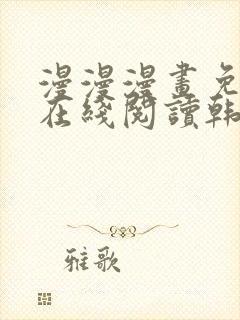 漫漫漫畫免
在綫閱讀韩
雅歌